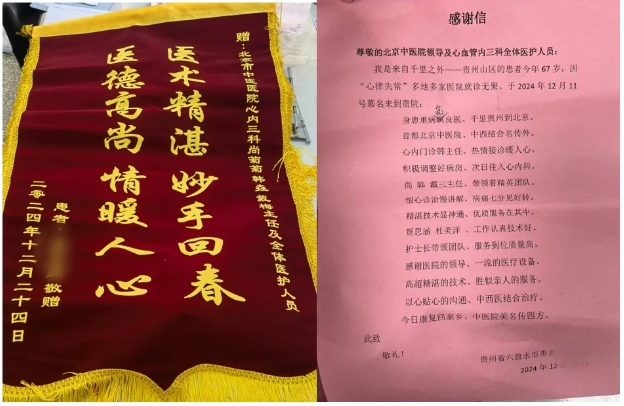 赠：北京市中医医院心内三科尚菊菊韩垚戴梅主任及全体医护人员
医术精湛 妙手回春
医德高尚 情暖人心
患者
敬赠
二零二四年十二月二十四日
感谢信
尊敬的北京中医院领导及心血管内三科全体医护人员：
我是来自千里之外——贵州山区的患者今年 67 岁，因
“心律失常”多地多家医院就诊无果、于 2024 年 12 月 11
号慕名来到贵院：
身患重病觅良医、千里贵州到北京。
首都北京中医院、中西结合名传外。
心内门诊韩主任、热情接诊暖人心。
积极调整好病房、次日住入心内科。
韩 戴三主任、带领着精英团队。
细心诊治慢讲解、病痛七分见好转。
精湛技术是神通、优质服务在其中。
贾思涵 杜美洋 、工作认真技术好。
护士长带领团队、服务到位质量高。
感谢医院的领导、一流的医疗设备。
高超精湛的技术、胜似亲人的服务。
以心贴心的沟通、中西医结合治疗。
今日康复回家乡、中医院美名传四方。
此致
敬礼！
贵州省六盘水市患者
2024 年 12